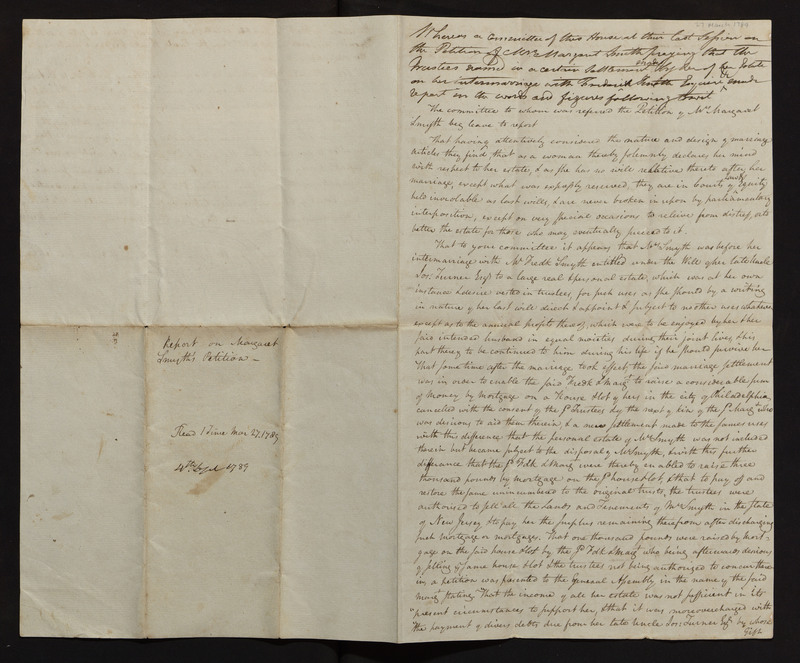 27 March 1789
Whereas a Committee of this House at their last Session on
the Petition of Mrs. Margaret Smyth praying that the
Trustees named in a certain Settlement made by her of her Estate
on her intermarriage with Frederick Smyth Esquire made
report in the words and figures following to wit
The committee to whom was referred the Petition of Mrs. Margaret
Smyth beg leave to report
That having attentively considered the nature and design of marriage
articles they find that as a woman thereby solemnly declares her mind
with respect to her estate, & as she has no will relative thereto after her
marriage, except what was expressly reserved, they are in Courts of Equity
held inviolable as last wills, & are never broken in upon by parliamentary
interposition, except on very special occasions to relieve from distress, or to
better the estate for those who may eventually succeed to it.
That to your committee it appears that Mrs. Smyth was before her
intermarriage with Mr. Fredk Smyth entitled under the Will of her late Uncle
Jos: Turner Esqr to a large real & personal estate, which was at her own
instance & desire vested in trustees, for such uses as she should by a writing
in nature of her last will direct & appoint & subject to no other uses whatever
except as to the annual profits thereof, which were to be enjoyed by her & her
said intended husband in equal moieties during their joint lives, & his
part thereof to be continued to him during his life if he should survive her
That some time after the marriage took effect, the said marriage settlement
was in order to enable the said Fredk & Margt to raise a considerable sum
of money by mortgage on a House & lot of hers in the city of Philadelphia
cancelled with the consent of the sd Trustees & by the next of kin of the sd Margt who
was desirous to aid them therein, & a new settlement made to the same uses
with this difference that the personal estate of Mrs Smyth was not included
therein but became subject to the disposal of Mr Smyth, & with this further
difference that the sd Fdk & Margt were thereby enabled to raise three
thousand pounds by mortgage on the sd house & lot, & that to pay off and
restore the same unincumbered to the original trusts, the trustees were
authorised to sell all the Lands and Tenements of Mrs Smyth in the State
of New Jersey & to pay her the surplus remaining therefrom after discharging
such mortgage or mortgages. That one thousand pounds were raised by mort-
gage on the said house & lot by the sd Fdk & Margt who being afterwards desirous
of selling the same house & lot & the trustees not being authorized to concur therein
in, a petition was presented to the General Assembly in the name of the said
Margt stating "That the income of all her estate was not sufficient in its
"present circumstances to support her, & that it was moreover charged with
"the payment of divers debts due from her late Uncle Jos: Turner Esqr by whose
gift
Report on Margaret
Smyth's Petition—
Read 1 time Mar 27. 1789
4th Sept 1789